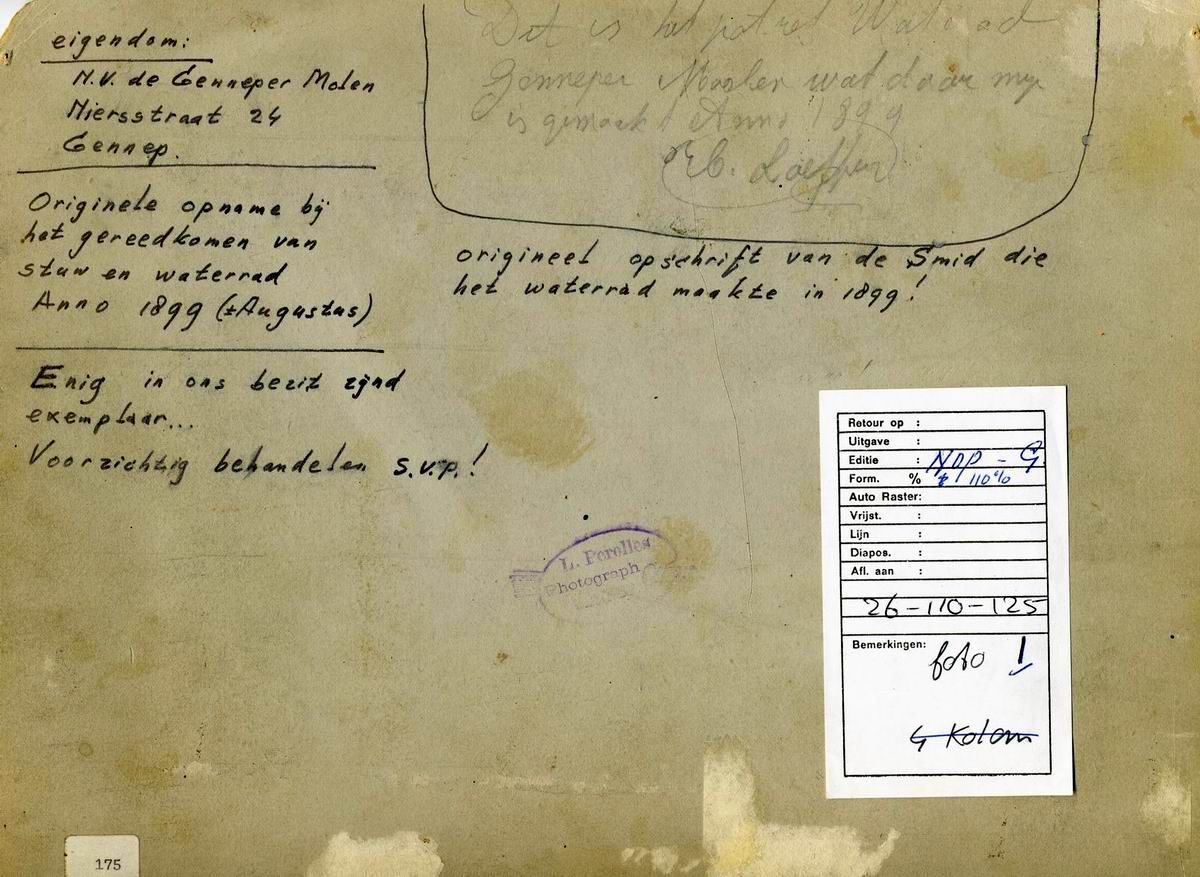 eigendom:
N.V. de Genneper Molen
Niersstraat 24
Gennep.
Originele opname bij
het gereedkomen van
stuw en waterrad
Anno 1899 (±Augustus)
Enig in ons bezit zijnd
exemplaar...
Voorzichtig behandelen s.v.p.!
Dit is het potret
Genneper wat daar
is gemaakt Anno 1899
origineel opschrift van de Smid die
het waterrad maakte in 1899!
L. Perelles
Photograph
Retour op :
Uitgave :
Editie : NDP - G
Form. % 110%
Auto Raster:
Vrijst. :
Lijn :
Diapos. :
Afl. aan :
26-110-125
Bemerkingen:
foto !
Kolom
175